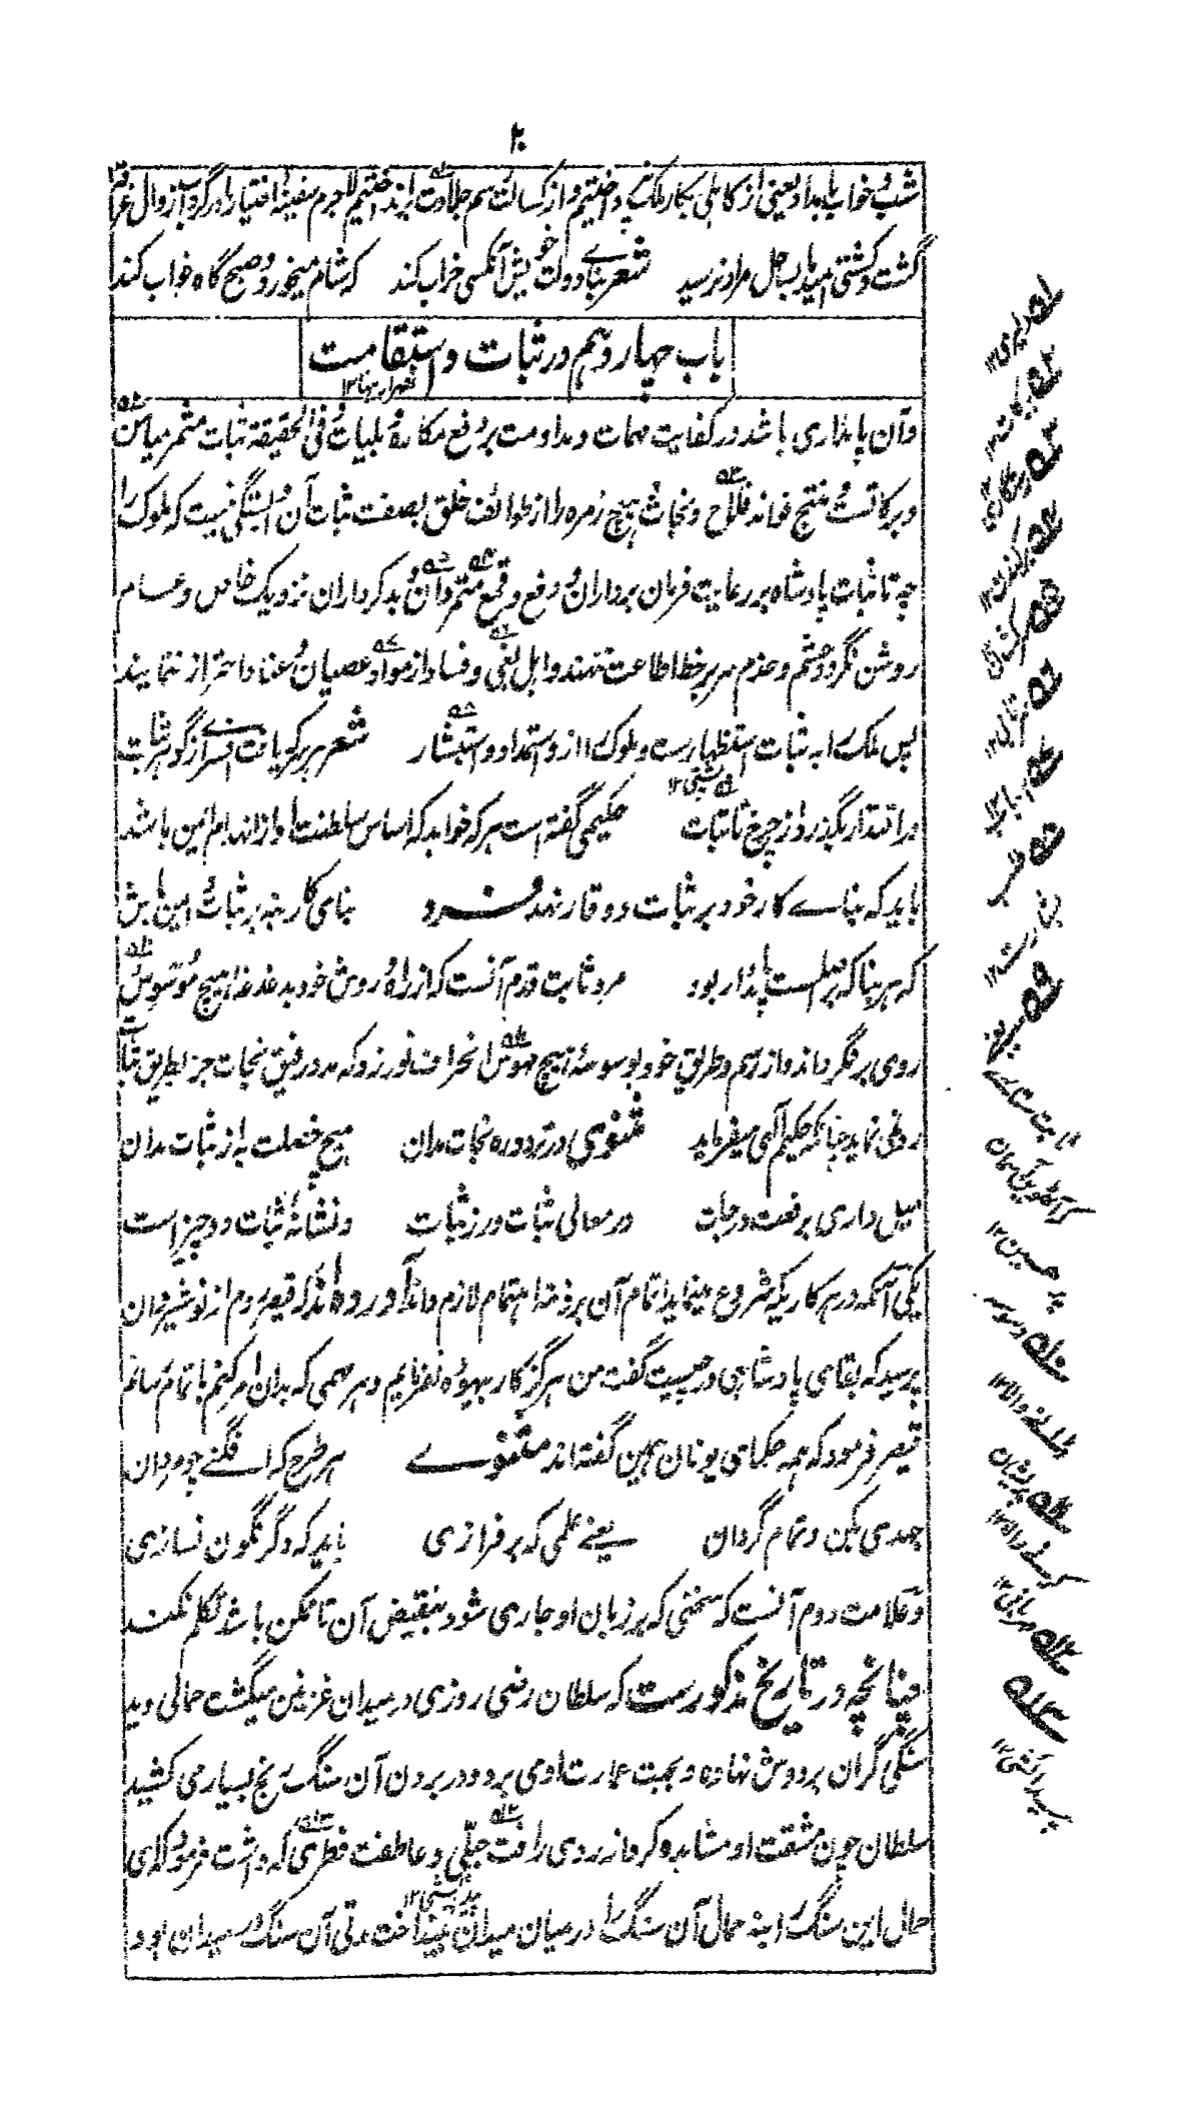 ۲۰
شب و خواب بامداد یعنی از کاهلی بکار ملک نپرداختیم و از کسالت سهم جلادت نینداختیم لاجرم سفینه اختیار در گرداب زوال غرق
گشت و کشتی امید بساحل مراد نرسید شعر بنای دولت خویش آنکسی خراب کند که شام میخورد و صبحگاه خواب کند
باب چهاردهم در ثبات و استقامت
و آن پایداری باشد در کفایت مهمات و مداومت بر دفع مکاره و بلیات و فی الحقیقة ثبات مثمر میامن
و برکاتست و منتج فواید فلاح و نجات و هیچ زمره را از طوائف خلق بصفت ثبات آن وابستگی نیست که ملوک را
چه تا ثبات پادشاه بر رعایت فرمان برداران و دفع و قمع متمردان و بدکرداران نزدیک خاص و عام
روشن نگردد حشم و خدم سر بر خط اطاعت ننهند و اهل بغی و فساد از مواد عصیان و عناد احتراز ننمایند
پس ملک را به ثبات استظهارست و ملوک را ازو استمداد و استبشار شعر هر که یافت افسرے از گوهر ثبات
در اقتدار بگذرد از چرخ با ثبات حکیمی گفته است هر که خواهد که اساس سلطنت او از انهدام ایمن باشد
باید که بناے کار خود بر ثبات و وقار نهد فرد بنای کار بنه بر ثبات و ایمن باش
که هر بنا که بر اصلست پایدار بود مرد ثابت قدم آنست که از راه و روش خود بدغدغه هیچ موسوس
روی برنگرداند و از رسم و طریق خود بوسوسه هیچ مهوس انحراف نورزد که مدد رفیق نجات جز بطریق ثبات
روئی ننماید چنانکه حکیم الهی میفرماید مثنوی در تردد ره نجات مدان هیچ خصلت به از ثبات مدان
میل داری برفعت درجات در معالی ثبات ورز ثبات و نشانه ثبات دو چیز است
یکی آنکه در هر کاریکه شروع مینماید اتمام آن بر ذمه اهتمام لازم داند آورده اند که قیصر روم از نوشیروان
پرسید که بقای پادشاهی در چیست گفت من هرگز کار بیهوده نفرمایم و هر مهمی که بدان امر کنم باتمام رسانم
قیصر فرمود که همه حکمای یونان همین گفته اند مثنوے هر طرح که افگنے چو مردان
جهدی بکن و تمام گردان یعنے علمی که بر فرازی باید که دگر نگون نسازی
و علامت دوم آنست که سخنی که بر زبان او جاری شود بنقیض آن تا ممکن باشد تکلم نکند
چنانچه در تاریخ مذکورست که سلطان رضی روزی در میدان غزنین میگشت حمالی دید
سنگی گران بر دوش نهاده و بجهت عمارت اومی برد و در بردن آن سنگ رنج بسیار می کشید
سلطان چون مشقت او مشاهده کرد از روی رافت جبلی و عاطفت فطری که داشت فرمود که ای
حمال این سنگ را بنه حمال آن سنگ را در میان میدان بینداخت مدتی آن سنگ در میدان بود